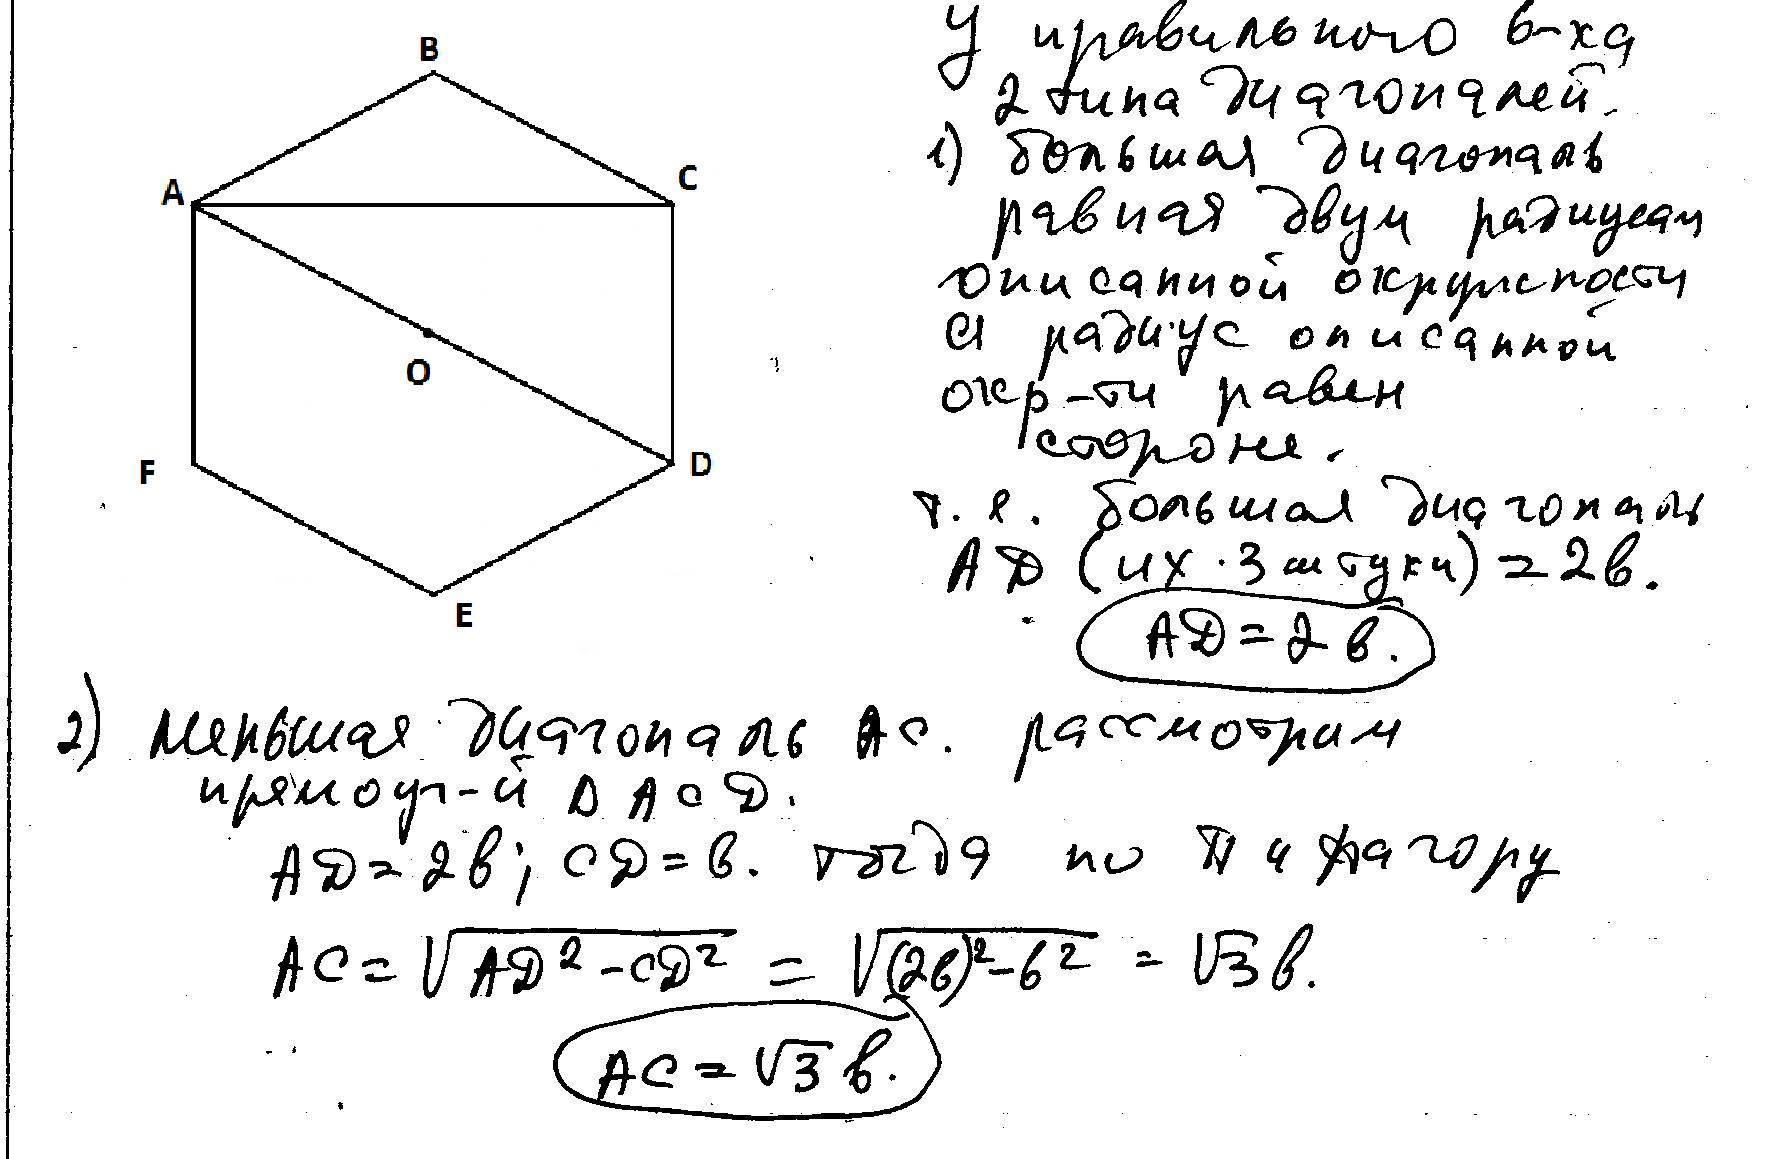 B
A
C
O
F
D
E
У правильного 6-ка
2 типа диагоналей.
1) большая диагональ
равная двум радиусам
описанной окружности
а радиус описанной
окр-ти равен
стороне.
т. е. большая диагональ
AD (их 3 штуки) = 2в.
AD = 2в.
2) меньшая диагональ AC. рассмотрим
прямоуг-й Δ ACD.
AD = 2в; CD = в. тогда по Пифагору
AC = √AD² - CD² = √(2в)² - в² = √3 в.
AC = √3 в.